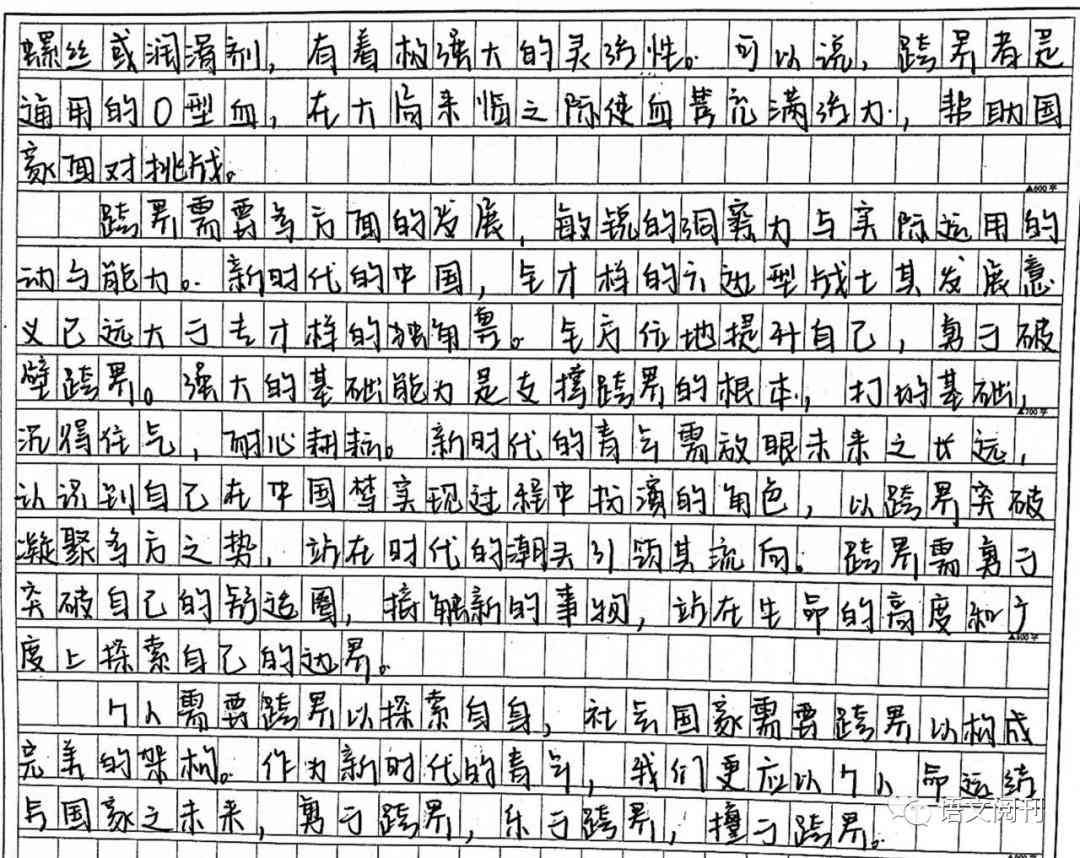 螺丝或润滑剂，有着构强大的灵活性。可以说，跨界者是
通用的O型血，在大局来临之际使血管充满活力，帮助国
家面对挑战。
▲600字
跨界需要多方面的发展，敏锐的洞察力与实际运用的
动与能力。新时代的中国，全才样的六边型战士其发展意
义已远大于专才样的独角兽。全方位地提升自己，勇于破
壁跨界。强大的基础能力是支撑跨界的根本，打的基础，
▲700字
沉得住气，耐心耕耘。新时代的青年需放眼未来之长远，
认识到自己在中国梦实现过程中扮演的角色，以跨界突破
凝聚多方之势，站在时代的潮头引领其流向。跨界需勇于
突破自己的舒适圈，接触新的事物，站在生命的高度和广
▲800字
度上探索自己的边界。
个人需要跨界以探索自身，社会国家需要跨界以构成
完美的架构。作为新时代的青年，我们更应以个人命运结
与国家之未来，勇于跨界，乐于跨界，擅于跨界。
语文阅刊